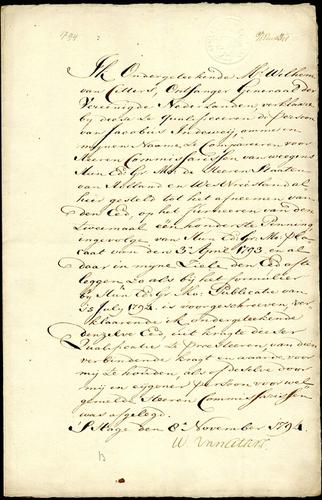 1794
Ik Ondergeteekende Mr. Wilhem
van Citters, Ontfanger Generaal der
Vereenigde Nederlanden, verklaare
bij deese te qualificeeren de Persoon
van Jacobus Indewij, omme en
mijnen Naame te Compareeren voor
Heeren Commissarissen van weegens
Hun Ed: Gr: Mo: de Heeren Staaten
van Holland en West Vriesland al
hier gesteld tot het afneemen van
den Eed, op het furneeren van den
twee maal een honderdste Penning
ingevolge van Hun Ed: Gr: Mo: Pla
caat van den 3e April 1793 en al
daar in mijne Ziele den Eed afte
leggen, zo als bij het formulier
bij Hun Ed: Gr: Mo: Publicatie van
July 1794 is voorgeschreeven, ver
klaarende ik ondergeteekende
denzelve Eed, uit kragte deeser
Qualificatie te Præsteeren, van die
verbindende kragt en waarde voor
mij te houden, als of deselve door
mij in eijgener persoon voor wel
gemelde Heeren Commissarissen
was afgelegd.
'S Hage den 8e November 1794
W. van Citters